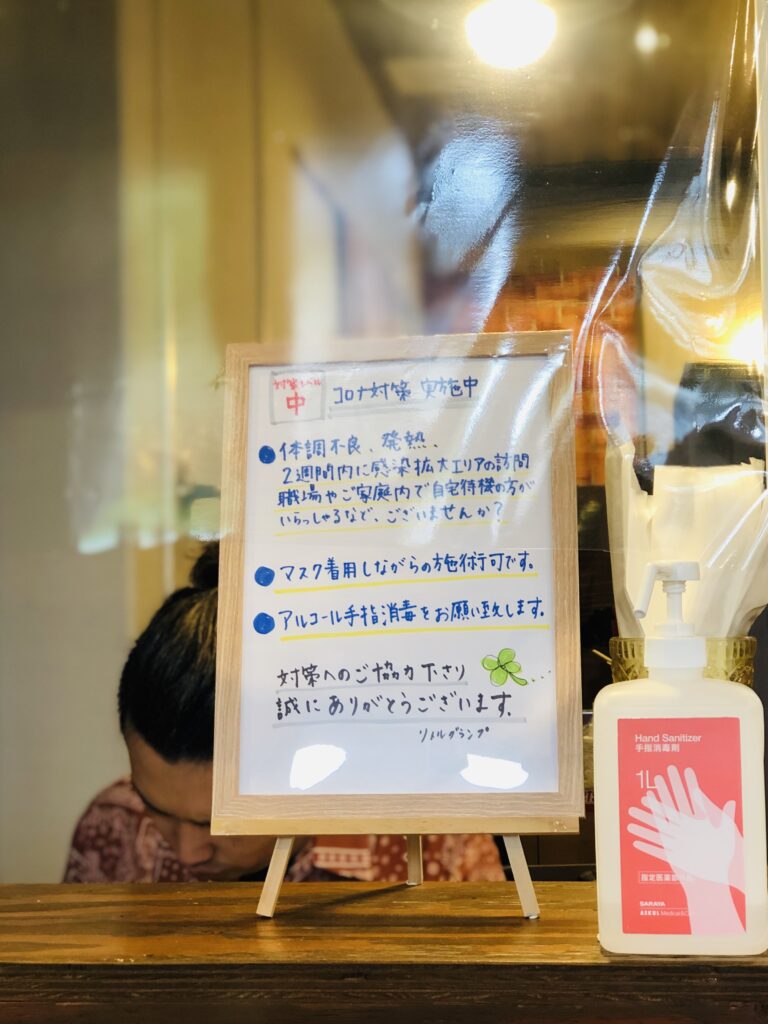 対策レベル
中
コロナ対策 実施中
体調不良、発熱、
2週間内に感染拡大エリアの訪問
職場やご家庭内で自宅待機の方が
いらっしゃるなど、ございませんか?
マスク着用しながらの施術可です。
アルコール手指消毒をお願い致します。
対策へのご協力下さり
誠にありがとうございます。
リメルグランプ
Hand Sanitizer
手指消毒剤
1L
指定医薬部外品
SARAYA